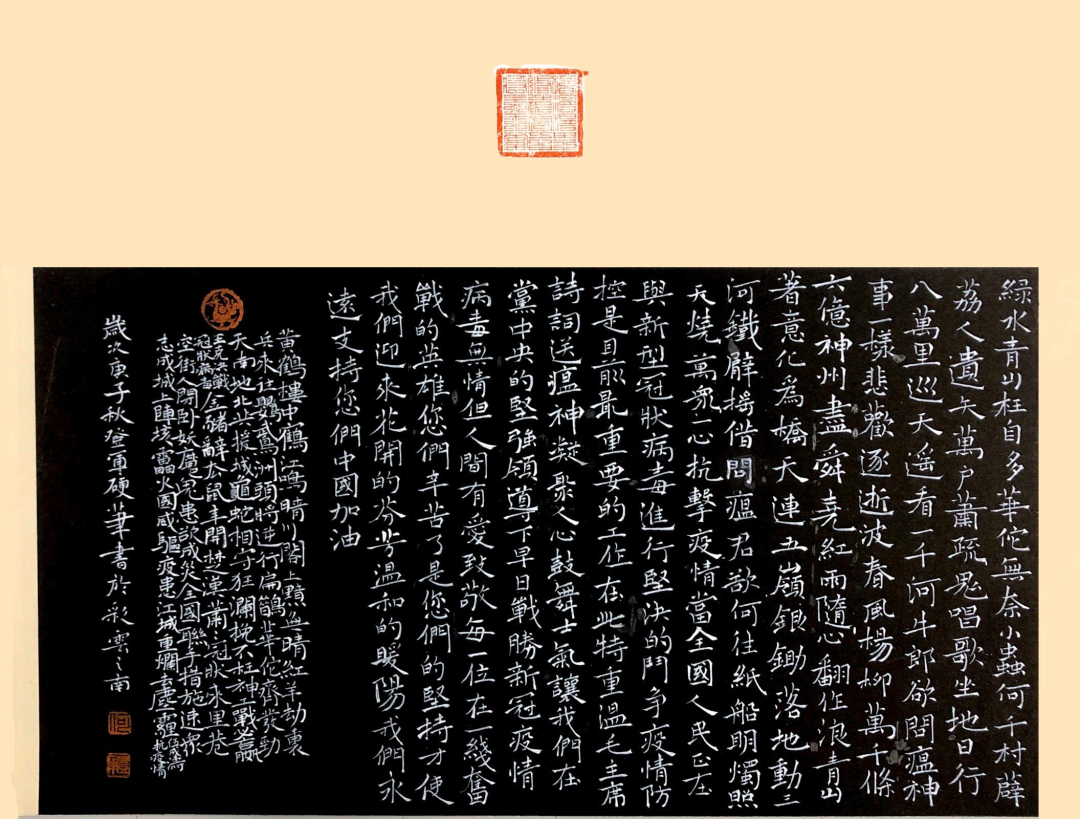 綠水青山枉自多華佗無奈小蟲何千村薜
荔人遺矢萬户蕭疏鬼唱歌坐地日行
八萬里巡天遥看一千河牛郎欲問瘟神
事一樣悲歡逐逝波春風楊柳萬千條
六億神州盡舜堯紅雨隨心翻作浪青山
著意化為橋天連五嶺銀鋤落地動三
河鐵臂摇借問瘟君欲何往紙船明燭照
天燒萬眾一心抗擊疫情當全國人民正在
與新型冠狀病毒進行堅决的鬥争疫情防
控是目前最重要的工作在此特重温毛主席
詩詞送瘟神凝聚人心鼓舞士氣讓我們在
黨中央的堅强領導下早日戰勝新冠疫情
病毒無情但人間有愛致敬每一位在一綫奮
戰的英雄您們辛苦了是您們的堅持才使
我們迎來花開的芬芳温和的暖陽我們永
遠支持您們中國加油
黄鶴樓中鶴鳴晴川閣上點晴紅羊劫裏
兵來往鸚鵡洲頭將逆行扁鵲華佗齊發勁
天南地北共援城龜蛇相守狂瀾挽不枉神工戰
冠狀病毒
空街人閉卧妖魔鬼患欲成災全國聯手措施
志成城上陣垓火國威驅疫患江城重爛
抗疫情
歲次庚子秋登軍硬筆書於彩雲之南